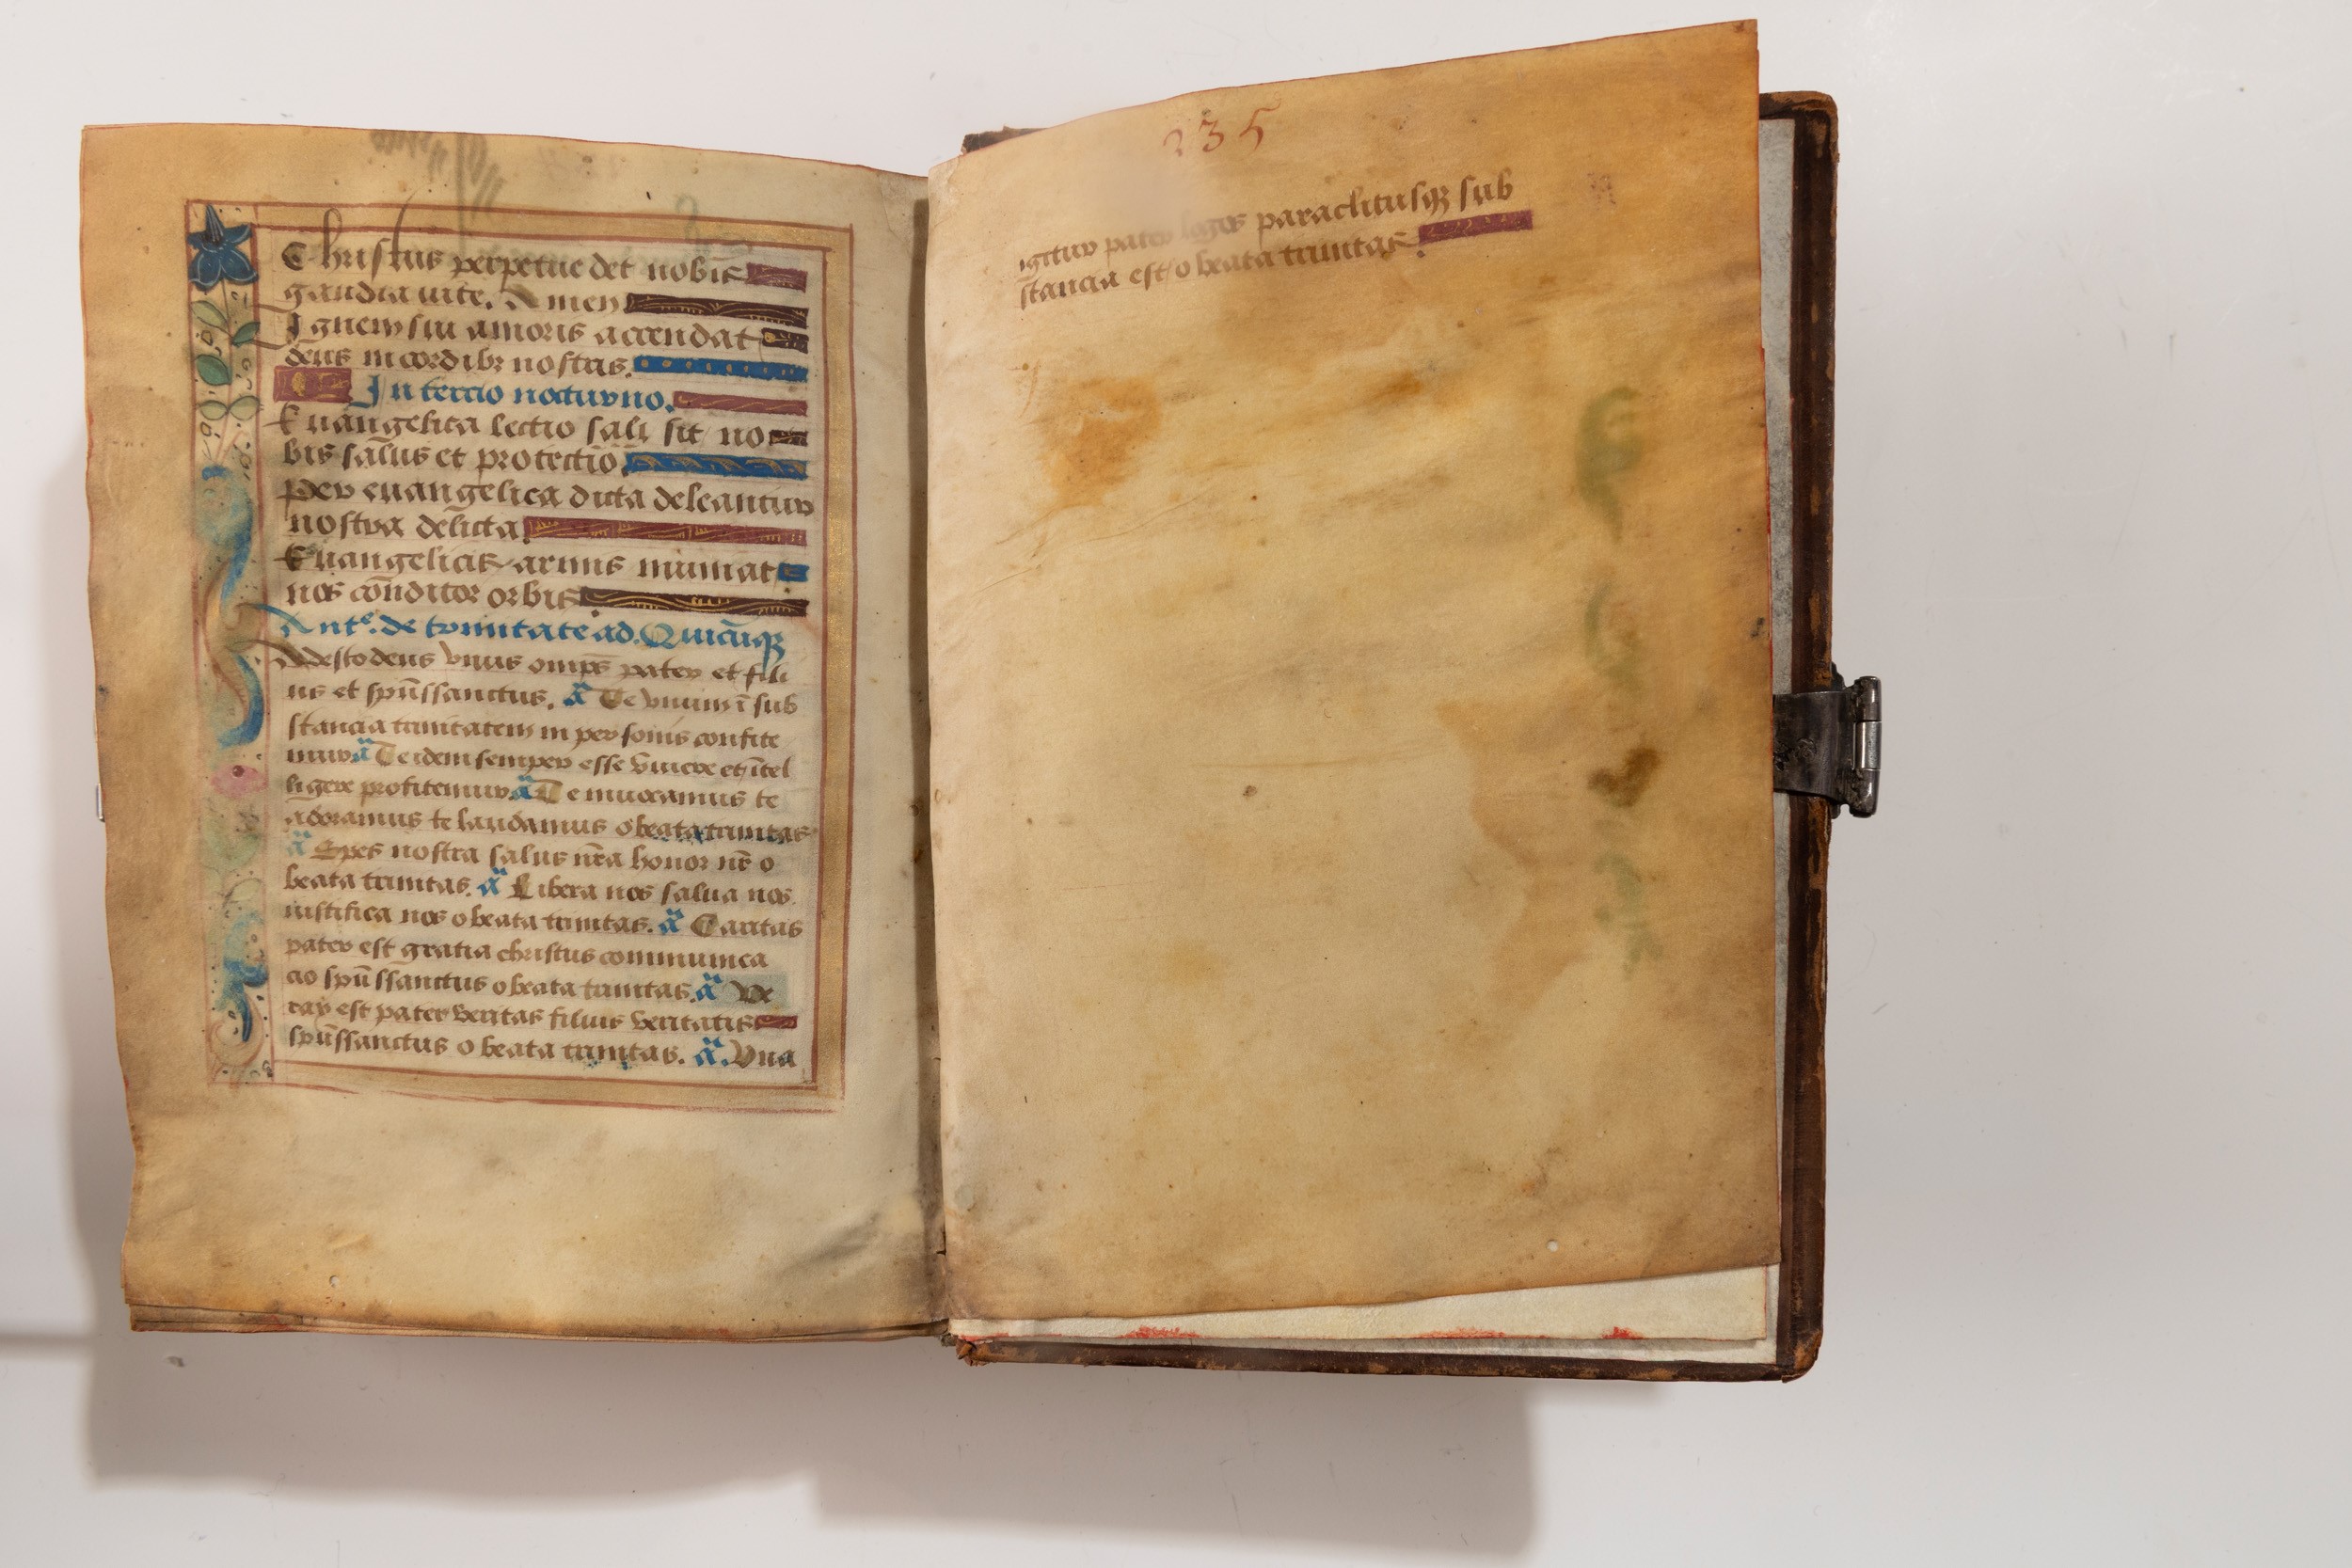 Christus perpetue det nobis
gaudia uite. Amen
Ignem sui amoris accendat
deus in cordibꝫ nostris.
In tercio nocturno.
Euangelica lectio sall sit no
bis salus et protectio.
Per euangelica dicta deleantur
nostra delicta.
Euangelicis armis muniat
nos cōnditor orbis.
Antᵉ. de trinitate ad. Quicūqꝫ
Adesto deus vnus omp̄s pater et fili
us et spūssanctus. ā Te vnum ī sub
stancia trinitatem in personis confite
mur ā Te idem semper esse viuere et ītel
ligere profitemur ā Te inuocamus te
adoramus te laudamus o beata trinitas
ā Spes nostra salus nr̄a honor nr̄ o
beata trinitas. ā Libera nos salua nos
iustifica nos o beata trinitas. ā Caritas
pater est gratia christus communica
cio spūssanctus o beata trinitas. ā Ve
rax est pater veritas filius veritatis
spūssanctus o beata trinitas. ā. Vna
235
igitur pater logos paraclitusqꝫ sub
stancia est o beata trinitas.